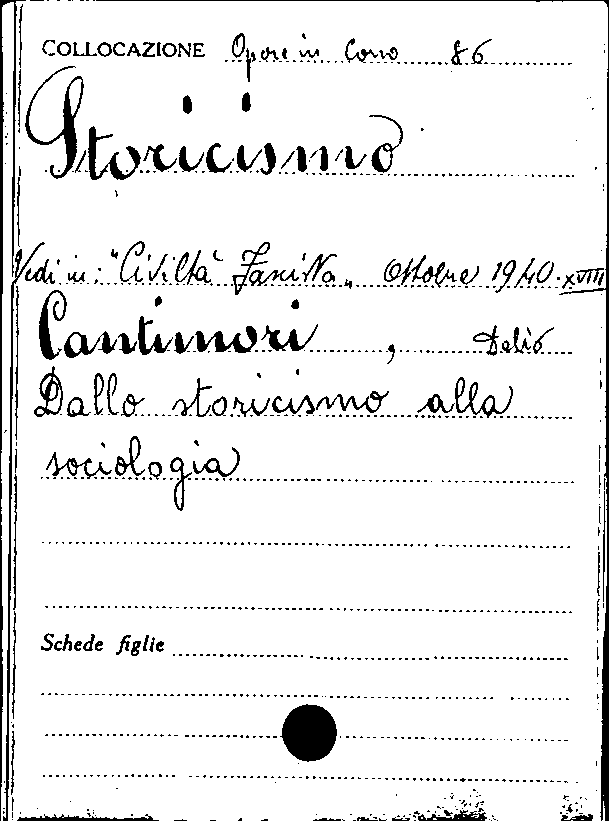 COLLOCAZIONE Opere in Corso 86
Storicismo
Vedi in: "Civiltà Fascista„ Ottobre 1940-XVIII
Cantimori, Delio
Dallo storicismo alla
sociologia
Schede figlie